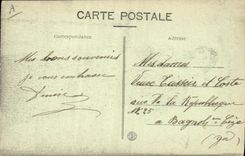 A
CARTE POSTALE
Correspondance
Adresse
Mes bons souvenirs
je vous embrasse
Mesdames
Veuve Tussier et Costa
rue de la République
N° 25
à Bagnols-Cèze